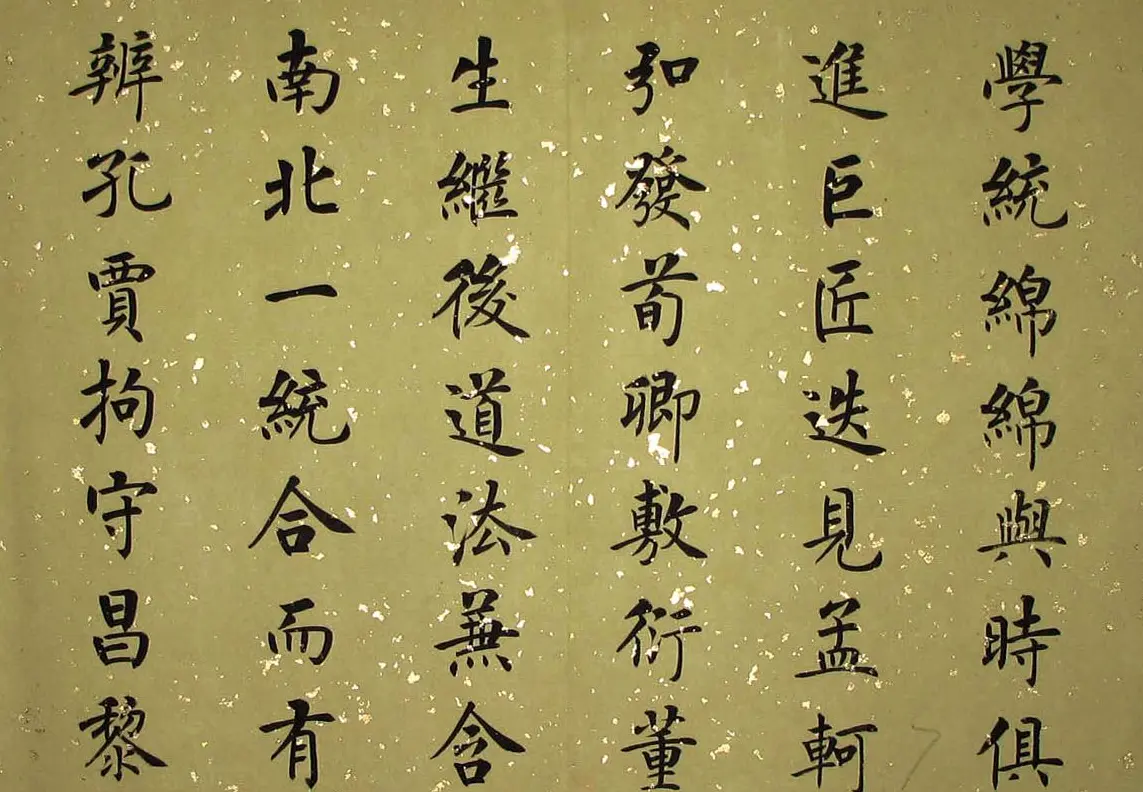 學統綿綿與時俱
進巨匠迭見孟軻
弘發荀卿敷衍董
生繼後道法兼含
南北一統合而有
辨孔賈拘守昌黎